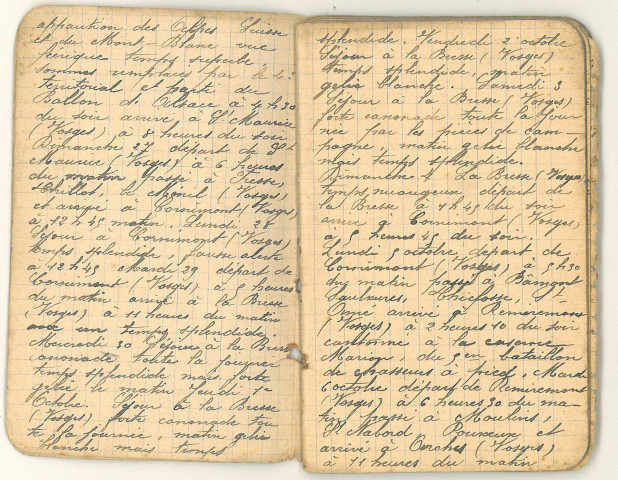 apparition des Alpes Suisse
et du Mont-Blanc vue
féérique temps superbe,
sommes remplacés par le 43
territorial et parti du
Ballon d'Alsace à 4 h 30
du soir arrivé à St Maurice
(Vosges) à 8 heures du soir
Dimanche 27 départ de St
Maurice (Vosges) à 6 heures
du matin passé à Fresse,
le Ménil (Vosges)
et arrivé à Cornimont (Vosges)
à 12 h 45 matin. Lundi 28
Séjour à Cornimont (Vosges)
temps splendide, fausse alerte
à 12 h 45 Mardi 29 départ de
Cornimont (Vosges) à 5 heures
du matin arrivé à la Bresse
(Vosges) à 11 heures du matin
un temps splendide
Mercredi 30 Séjour à la Bresse
canonade toute la journée
temps splendide mais forte
gelée le matin Jeudi 1er
Octobre. Séjour à la Bresse
(Vosges) forte canonade tou
te la journée, matin gelée
blanche mais temps
splendide. Vendredi 2 octobre
Séjour à la Bresse (Vosges)
temps splendide, matin
gelée blanche. Samedi 3
Séjour à la Bresse (Vosges)
forte canonade toute la jour
née par les pièces de cam-
pagne, matin gelée blanche
mais temps splendide.
Dimanche 4 La Bresse (Vosges)
temps nuageux départ de
la Bresse à 1 h 45 du soir
arrivé à Cornimont (Vosges)
à 5 heures 45 du soir.
Lundi 5 octobre départ de
Cornimont (Vosges) à 5 h 30
du matin passé à Bâmont
Saulxures, Thiefosse, St-
Amé arrivé à Remiremont
(Vosges) à 2 heures 10 du soir
cantonné à la caserne
Marion, du 5 en bataillon
de chasseurs à pied, Mardi
6 octobre départ de Remiremont
(Vosges) à 6 heures 30 du ma-
tin passé à Moulins,
St Nabord Pouxeux et
arrivé à Arches (Vosges)
à 11 heures du matin